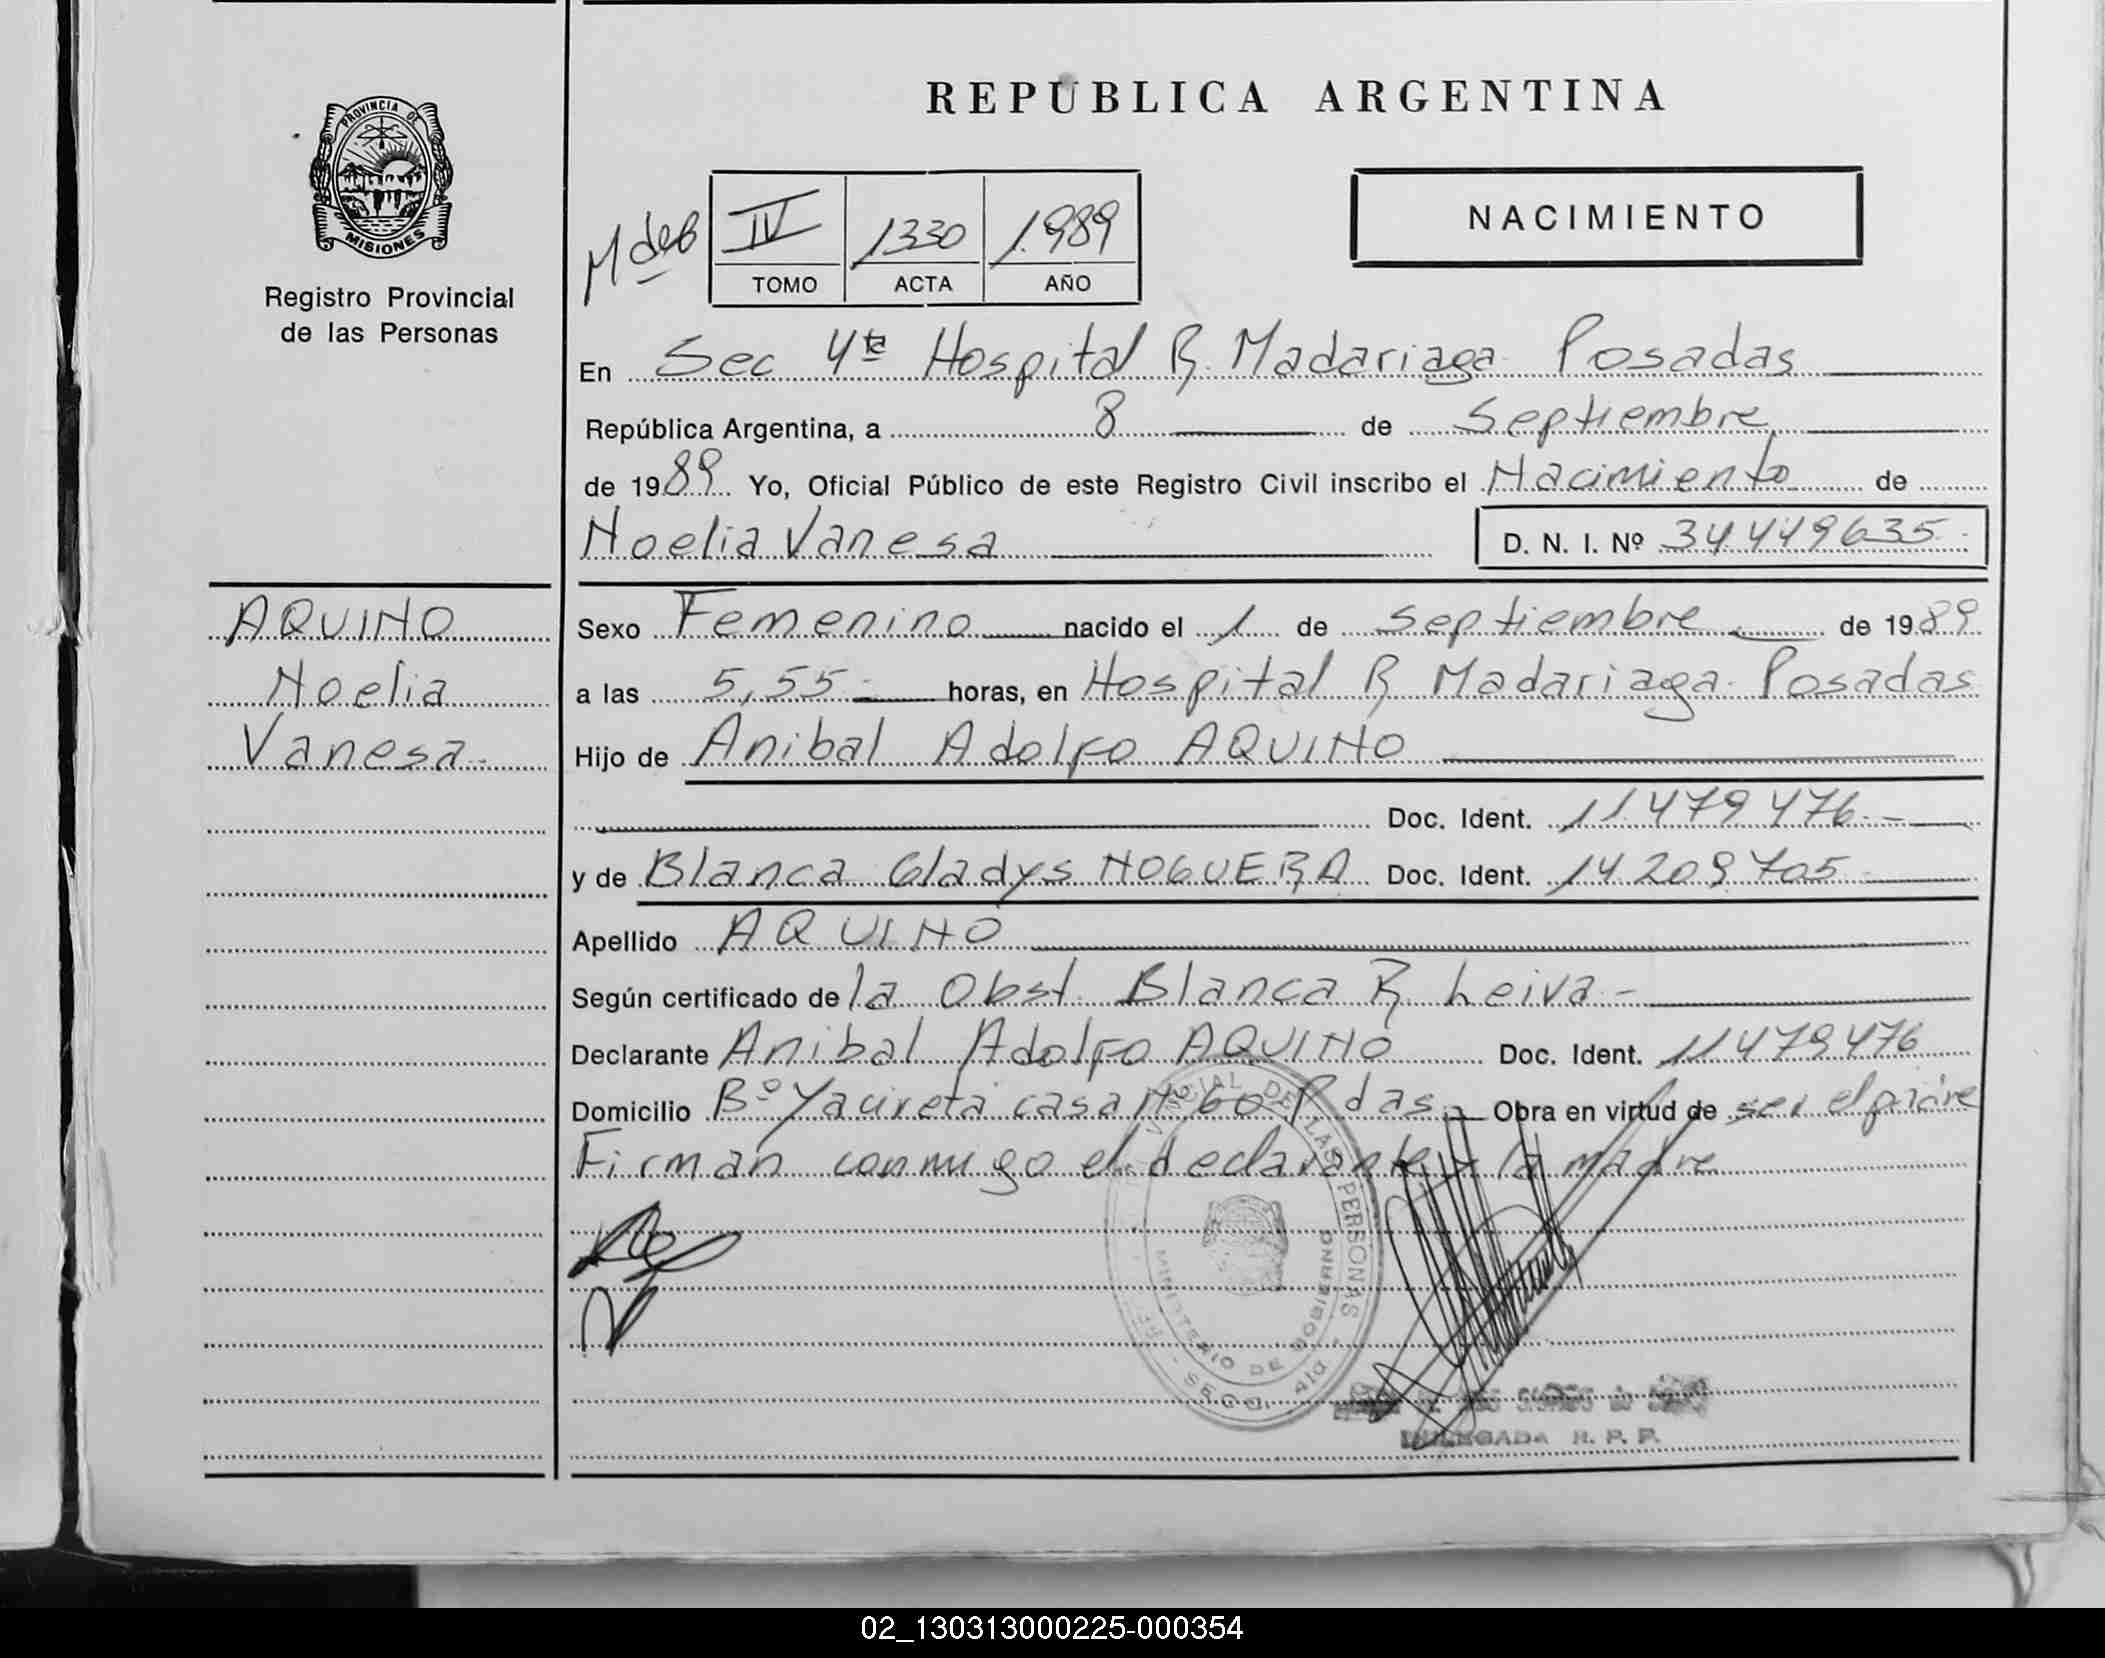 REPUBLICA ARGENTINA
PROVINCIA DE
MISIONES
Registro Provincial
de las Personas
IV 1330 1989
TOMO ACTA AÑO
NACIMIENTO
En Sec 4ta Hospital R. Madariaga Posadas
República Argentina, a 8 de Septiembre
de 1989 Yo, Oficial Público de este Registro Civil inscribo el Nacimiento de
Noelia Vanesa D. N. I. Nº 34449635
AQUINO
Noelia
Vanesa
Sexo Femenino nacido el 1 de septiembre de 1989
a las 5,55 horas, en Hospital R Madariaga Posadas
Hijo de Anibal Adolfo AQUINO
Doc. Ident. 11479476
y de Blanca Gladys NOGUERA Doc. Ident. 14209705
Apellido AQUINO
Según certificado de la Obst. Blanca R Leiva
Declarante Anibal Adolfo AQUINO Doc. Ident. 11479476
Domicilio Bº Yacireta casa Nº 60 Pdas Obra en virtud de ser el padre
Firman conmigo el declarante y la madre
DE LAS PERSONAS
MINISTERIO DE GOBIERNO
DELEGADA R. P. P.
02_130313000225-000354